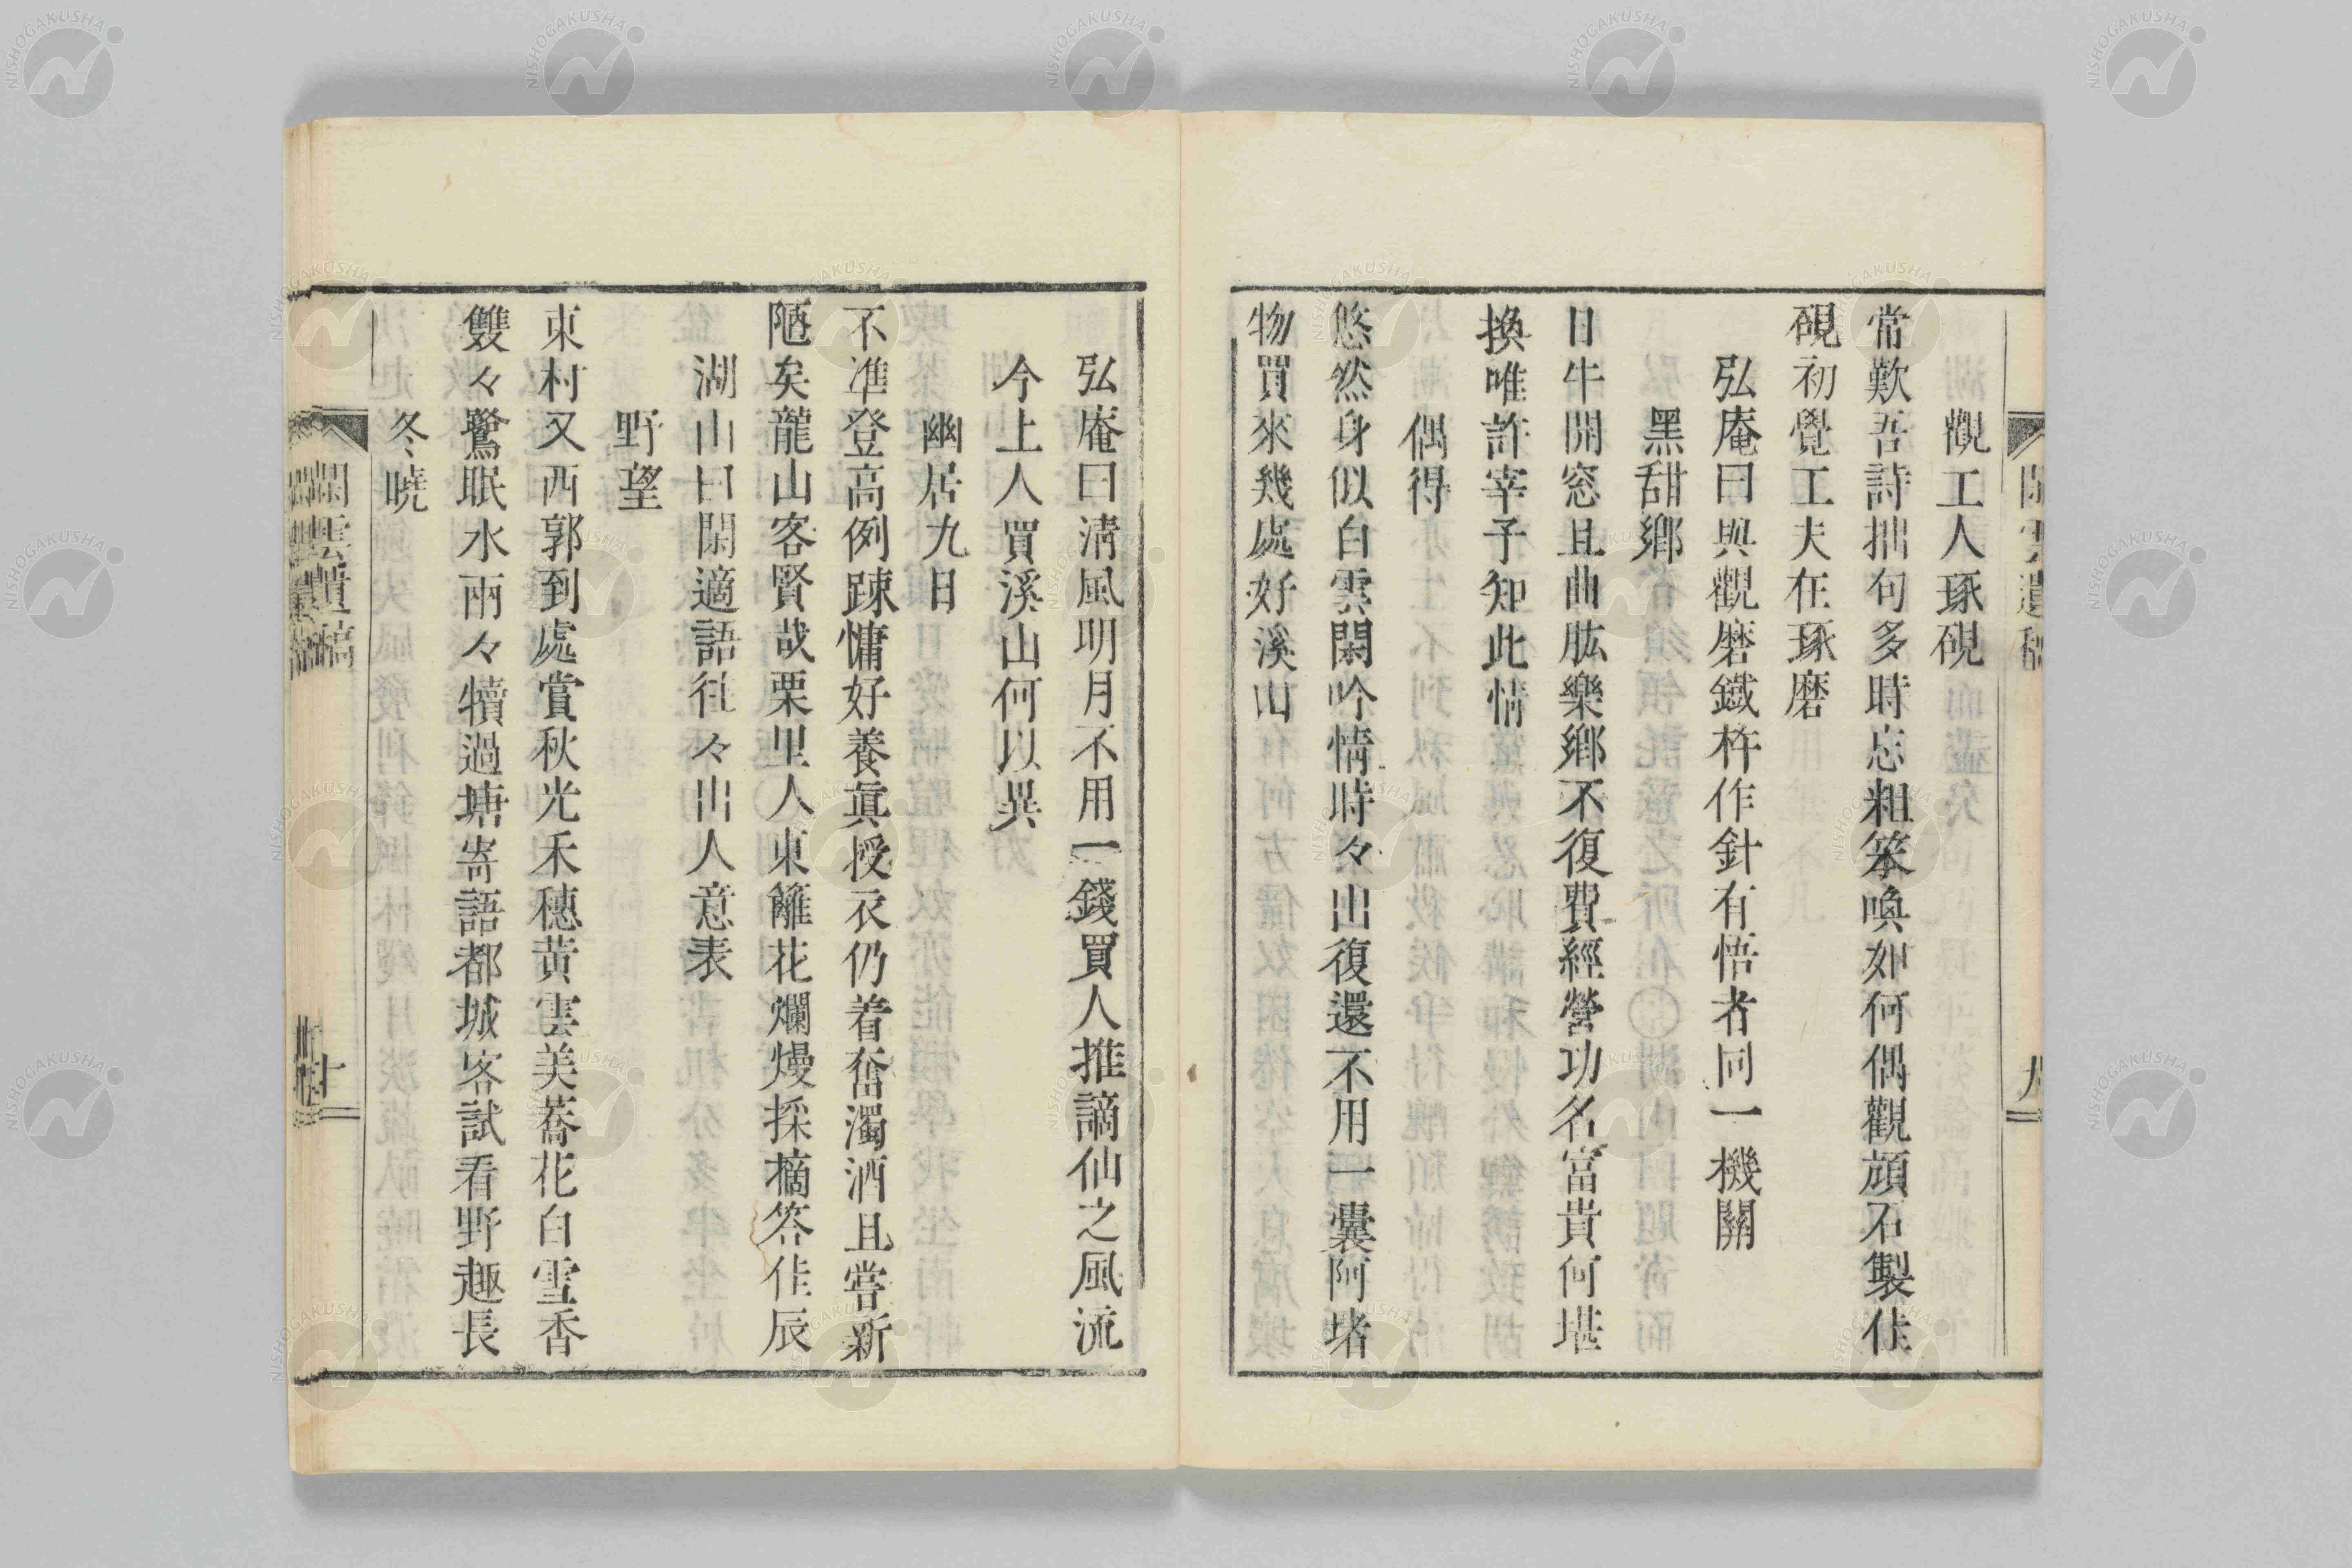 觀工人琢硯
常歎吾詩拙句多時忘粗笨喚如何偶觀頑石製佳
硯初覺工夫在琢磨
弘庵曰與觀磨鐵杵作針有悟者同一機關
黑甜鄉
日午開窓且曲肱樂鄉不復費經營功名富貴何堪
換唯許宰予知此情
偶得
悠然身似白雲閑吟情時々出復還不用一囊阿堵
物買來幾處好溪山
弘庵曰淸風明月不用一錢買人推謫仙之風流
今上人買溪山何以異
幽居九日
不準登高例踈慵好養眞授衣仍着舊濁酒且嘗新
陋矣龍山客賢哉栗里人東籬花爛熳採摘答佳辰
湖山曰閑適語往々出人意表
野望
東村又西郭到處賞秋光禾穗黃雲美蕎花白雪香
雙々鷺眠水兩々犢過塘寄語都城客試看野趣長
冬曉
閑雲遺稿
十